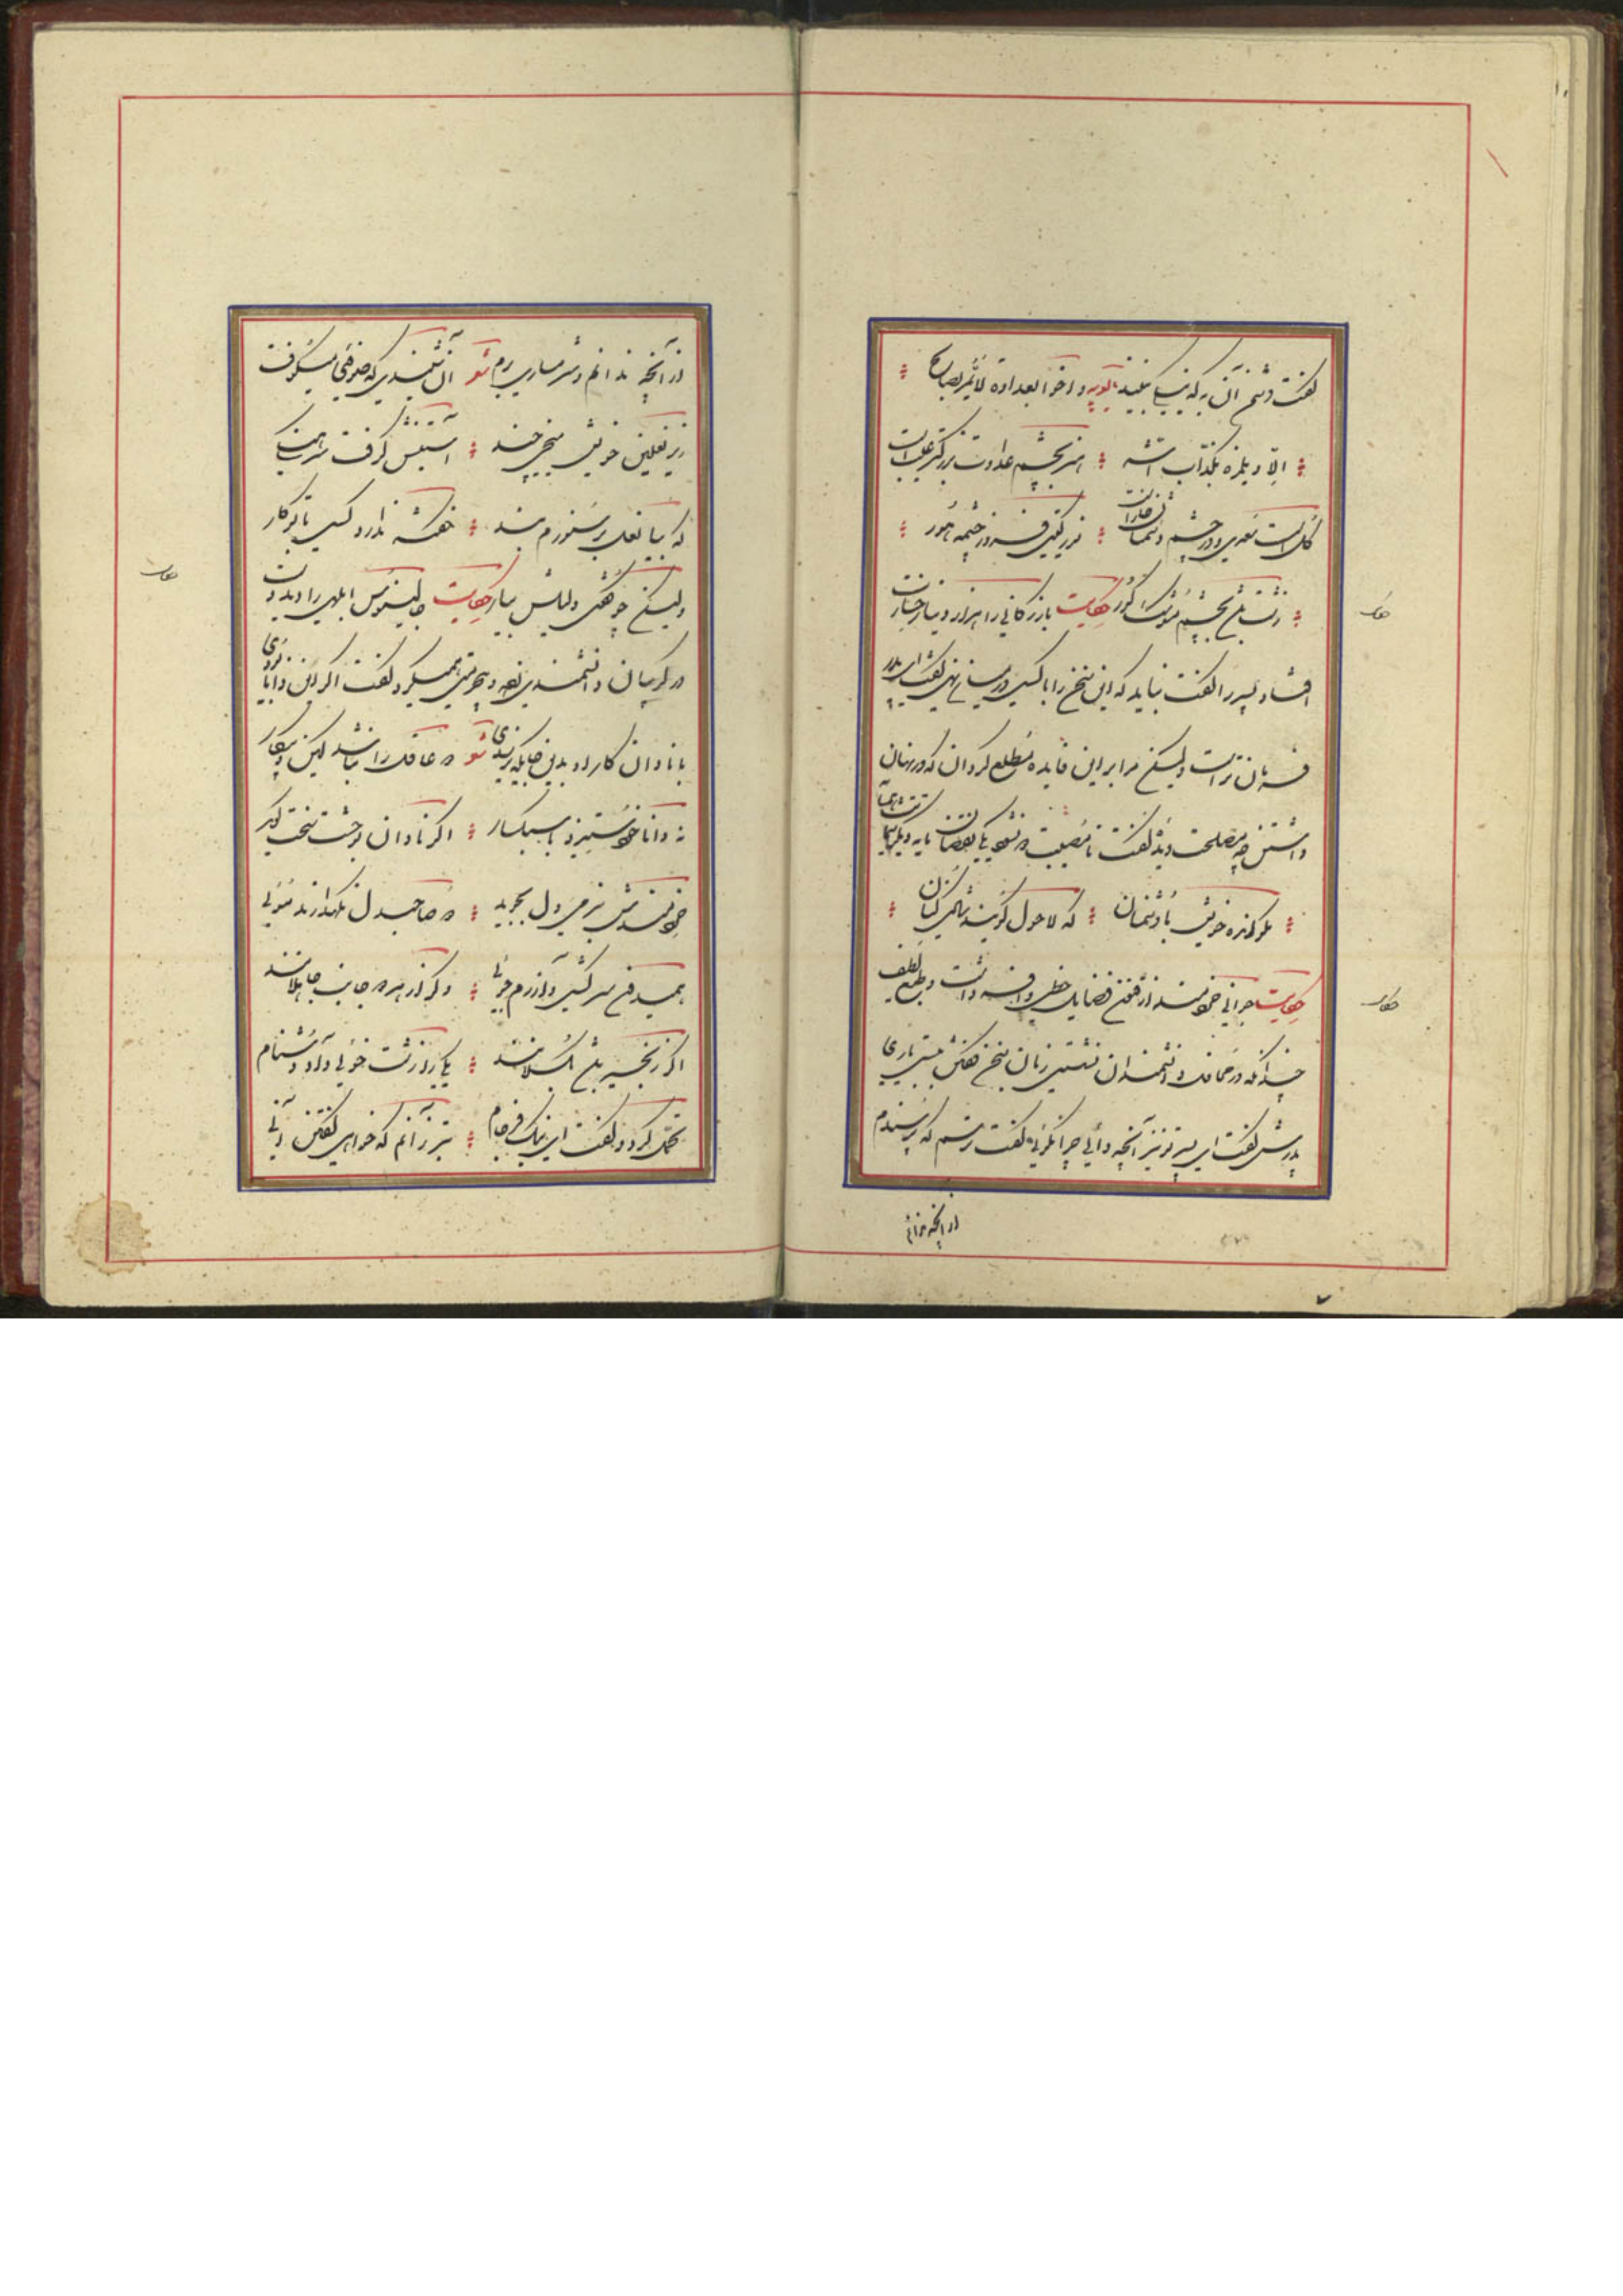 گفت دشمن آن به که نیکی نبیند بالعربیه و اخوا لعداوة لا یمر بصالح
الا و یلمزه بکذاب اشر هنر بچشم عداوت بزرگتر عیبست
گل است سعدی و در چشم دشمنان خارست نور گیتی فروز چشمه هور
زشت باشد بچشم موشک کور حکایت بازرگانی را هزار دینار خسارت
افتاد پسر را گفت نباید که این سخن را با کسی در میان نهی گفت ای پدر
فرمان تراست ولیکن مرا بر این فایده مطلع گردان که در نهان
داشتن چه مصلحت دید گفت تا مصیبت دو نشود یکی نقصان مایه دیگر شماتت همسایه
مگو انده خویش با دشمنان که لا حول گویند شادی کنان
حکایت جوانی خردمند از فنون فضایل حظی وافر داشت و طبع لطیف
چندانکه در محافل دانشمندان نشستی زبان سخن گفتن ببستی باری
پدرش گفت ای پسر تو نیز آنچه دانی چرا نگوئی گفت ترسم که بپرسندم
از آنچه ندانم
از آنچه ندانم و شرمساری برم شعر آن شنیدی که صوفی میکوفت
زیر نعلین خویش میخی چند آستینش گرفت سرهنگی
که بیا نعل بر ستورم بند نگفته ندارد کسی با تو کار
ولیکن چو گفتی دلیلش بیار حکایت جالینوس ابلهی را دید دست
در گریبان دانشمندی زده و بیحرمتی همیکرد گفت اگر این دانا بودی
با نادان کار او بدین جایگه نرسیدی شعر دو عاقل را نباشد کین و پیکار
نه دانا خود ستیزد با سبکسار اگر نادان بوحشت سخت گوید
خردمندش بنرمی دل بجوید دو صاحبدل نگهدارند موئی
همیدون سرکشی و آزرم جوئی وگر از هر دو جانب جاهلانند
اگر زنجیر باشد بگسلانند یکی را زشت خوئی داد دشنام
تحمل کرد و گفت ای نیک فرجام بتر زانم که خواهی گفتن آنی
حکایت
حکایت
حکایت